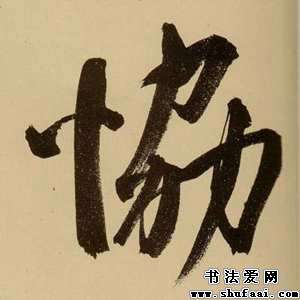 恊
书法爱网
www.shufaai.com